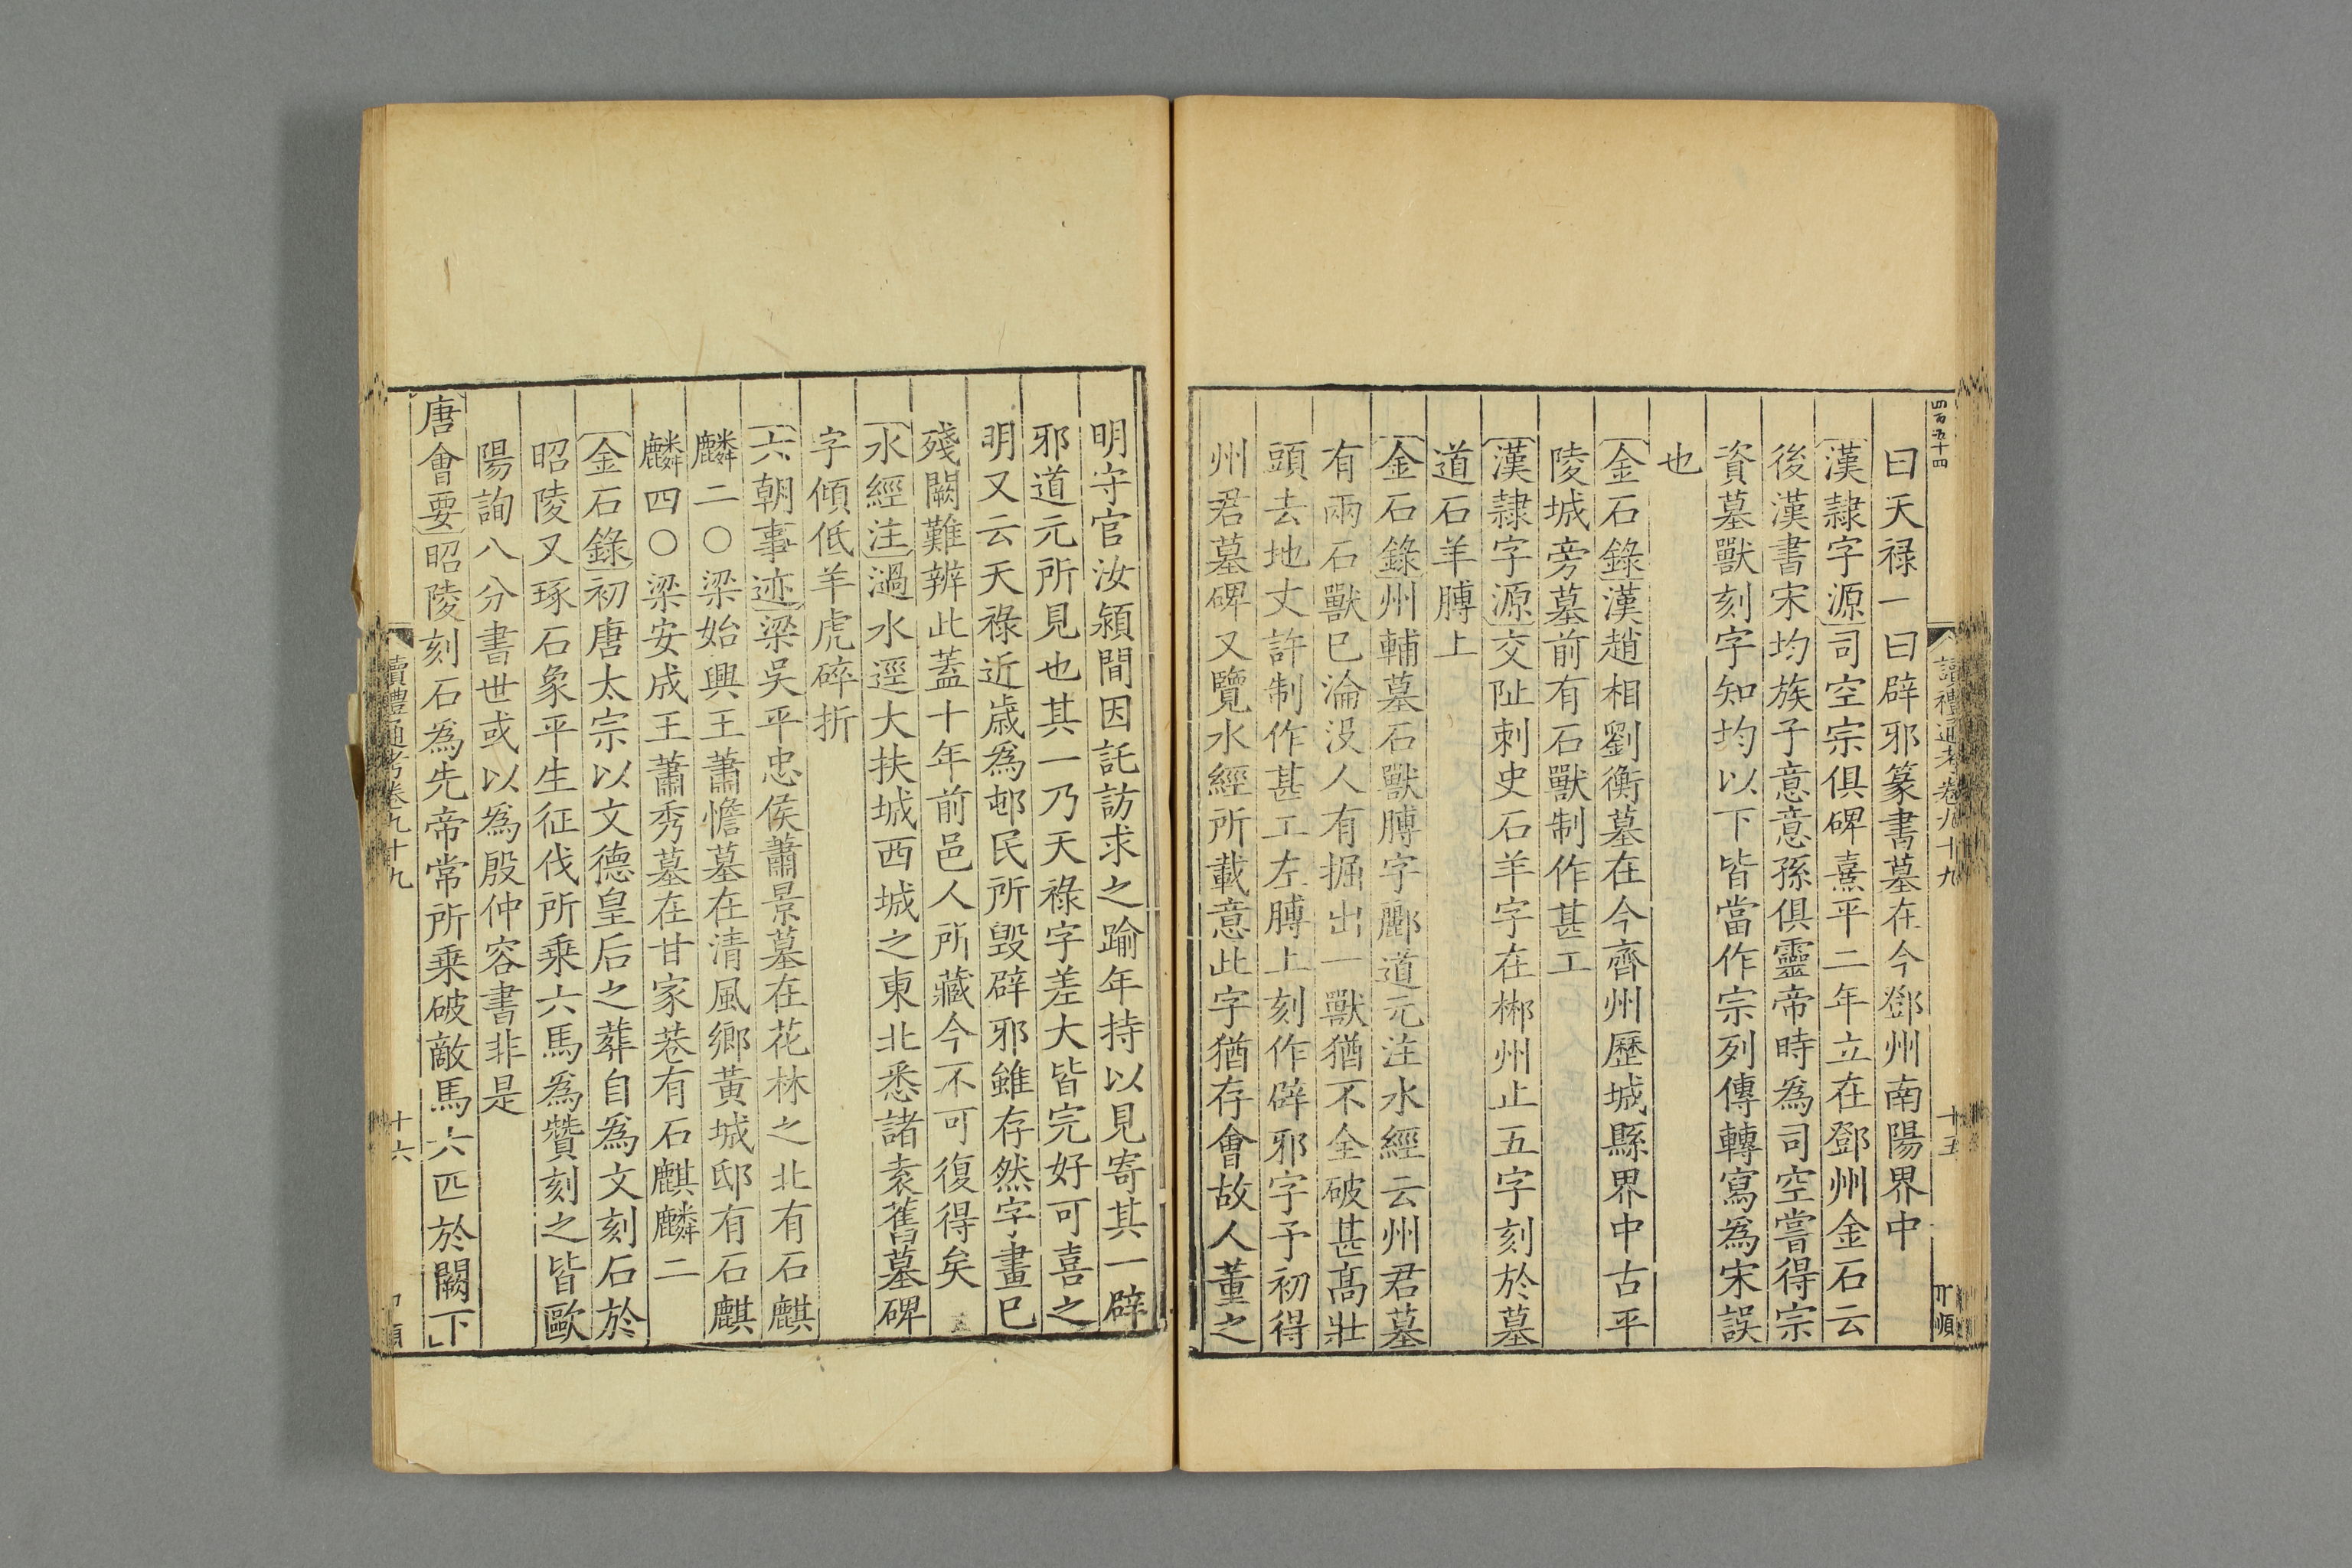 四百五十四
讀禮通考卷九十九
十五
曰天禄一曰辟邪篆書墓在今鄧州南陽界中
漢隷字源司空宗俱碑熹平二年立在鄧州金石云
後漢書宋均族子意意孫俱靈帝時爲司空嘗得宗
資墓獸刻字知均以下皆當作宗列傳轉寫爲宋誤
也
金石錄漢趙相劉衡墓在今齊州歷城縣界中古平
陵城旁墓前有石獸制作甚工
漢隷字源交阯刺史石羊字在郴州止五字刻於墓
道石羊膊上
金石錄州輔墓石獸膊字酈道元注水經云州君墓
有兩石獸已淪没人有掘出一獸猶不全破甚髙壯
頭去地丈許制作甚工左膊上刻作辟邪字予初得
州君墓碑又覽水經所載意此字猶存會故人董之
明守官汝潁間因託訪求之踰年持以見寄其一辟
邪道元所見也其一乃天祿字差大皆完好可喜之
明又云天祿近歳爲邨民所毁辟邪雖存然字畫已
殘闕難辨此蓋十年前邑人所藏今不可復得矣
水經注濄水逕大扶城西城之東北悉諸袁舊墓碑
字傾低羊虎碎折
六朝事迹梁吳平忠侯蕭景墓在花林之北有石麒
麟二○梁始興王蕭憺墓在清風鄉黃城邸有石麒
麟四○梁安成王蕭秀墓在甘家巷有石麒麟二
金石錄初唐太宗以文德皇后之葬自爲文刻石於
昭陵又琢石象平生征伐所乗六馬爲贊刻之皆歐
陽詢八分書世或以爲殷仲容書非是
唐會要昭陵刻石爲先帝常所乗破敵馬六匹於闕下
讀禮通考卷九十九
十六